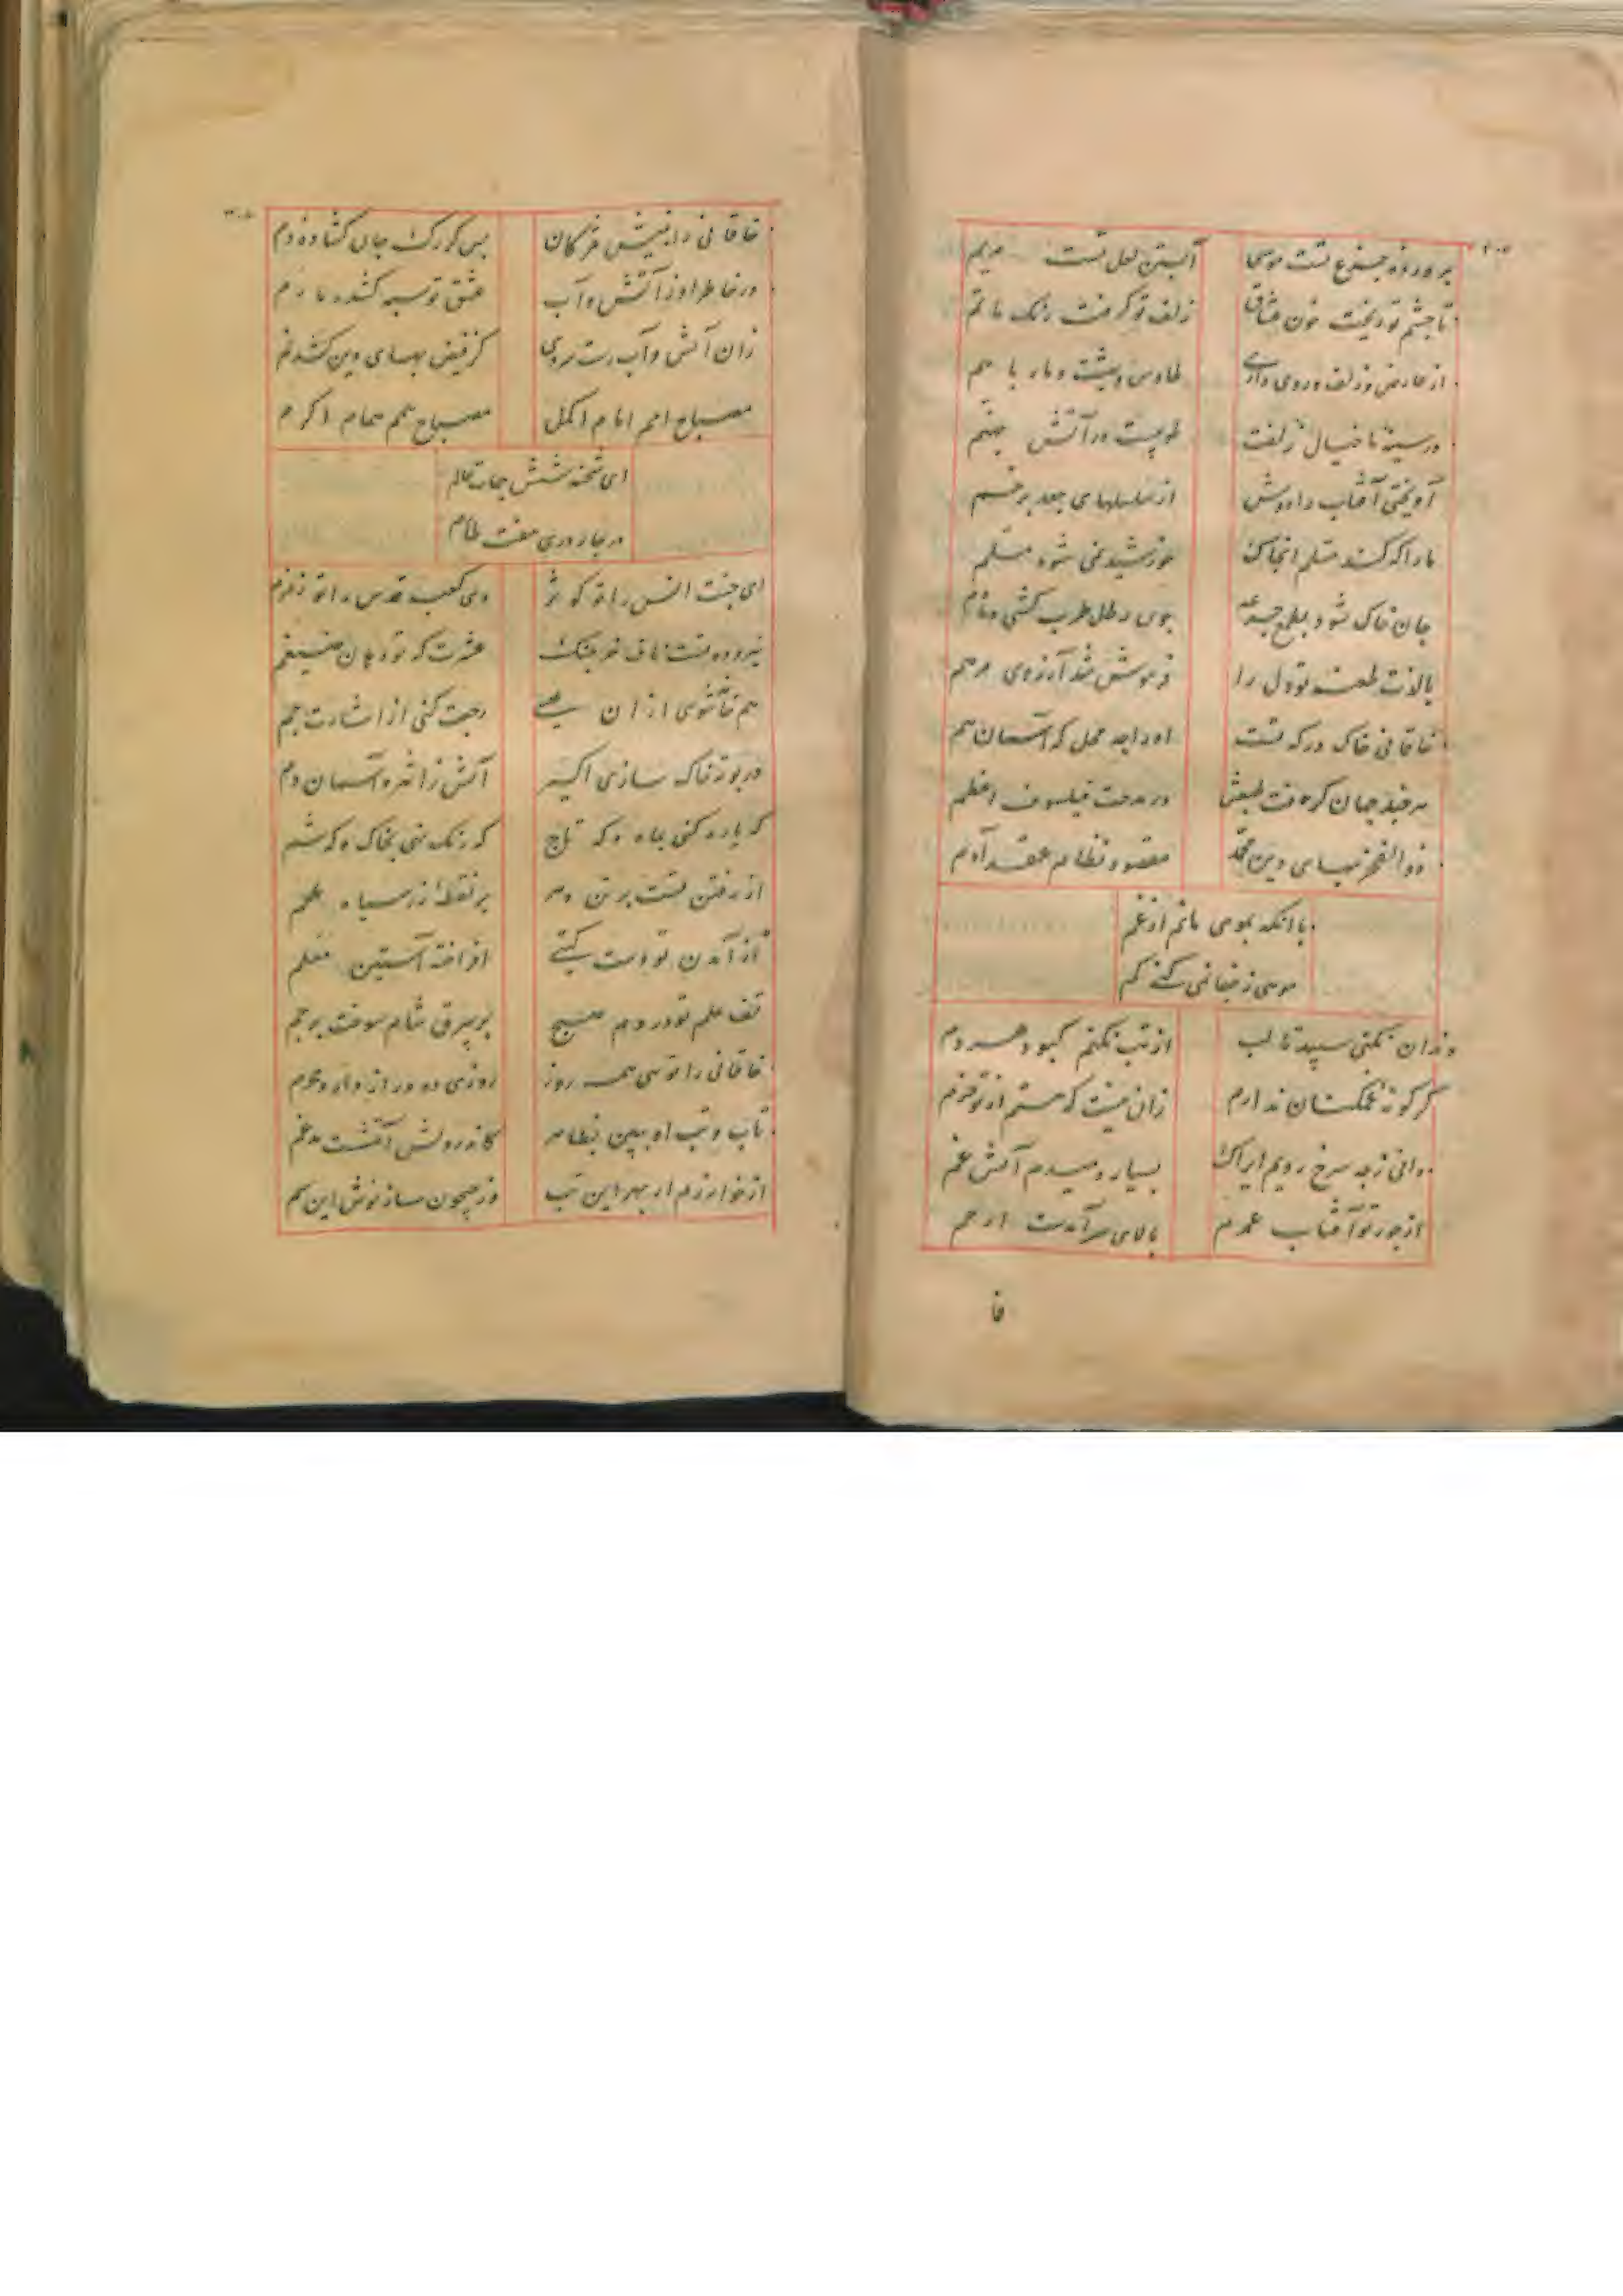 پرورده جزع تست موسی آبستن لعل تست مریم
تا چشم تو ریخت خون عشاق زلف تو گرفت رنگ ماتم
از عارض و زلف و روی داری طاوس و بهشت و مار با هم
در سینه ما خیال زلفت طوبیست در آتش جهنم
آویختی آفتاب را دوش از سلسلهای جعد پرخم
مار اکه کند مسلم انجا کن خورشید نمی شود مسلم
جان خاک شود بطمع جرعه چون رطل طرب کشی دمادم
با لذت طعنه تو دل را فرموش شد آرزوی مرهم
خاقانی خاک درکه تست او را چه محل که آسمان هم
هر چند جهان گرفت طبعش در مدحت فیلسوف اعظم
ذوالفخر بهای دین محمد مقصود نظام عقد آدم
با انکه بمومی مانم از غم
موسی ز خانمی کنی کم
دندان نکنی سپید تا لب از تب نکنم کبود هر دم
کر کونه غمکسان ندارم زان نیست که هستم از تو خرم
دانی ز چه سرخ رویم ایراک بسیار دمیدم آتش غم
از جور تو آفتاب عمرم بالای سر آمدست ارحم
فا
خاقانی را بنیش مژکان بس کز رک جان کشاده دم
در خاطر او ز آتش و آب عشق تو سپه کشد دمادم
زان آتش و آب رست سروی کز فیض بهای دین کشد نم
مصباح امم امام اکمل مصباح همم همام اکرم
ای شحنه شش جهات عالم
در چار دری هفت طارم
ای جنت انس را تو کوثر وی کعبه قدس را تو زمزم
نیروده تست ناف خرچنک عشرت که تو دهان ضیغم
هم خاشوی از ان رجعت کنی از اشارت جم
در بوته خاک سازی اکسیر آتش ز اثیر و آسمان دم
که یاره کنی بماه و که تاج که رنک دهی بخاک و که شم
از رفتن تست بر تن دهر بر نقطه زر سیاه علم
از آمدن تو دست کیتی افراخته آستین معلم
تف علم تو در دم صبح بر بیرق شام سوخت پرچم
خاقانی را توئی همه روز روزی ده و راز دار و محرم
تاب و تب او ببین بظاهر کاندر دلش آتشست مدغم
از خوارزم ار بهر این تب وز جیحون ساز نوش این سم